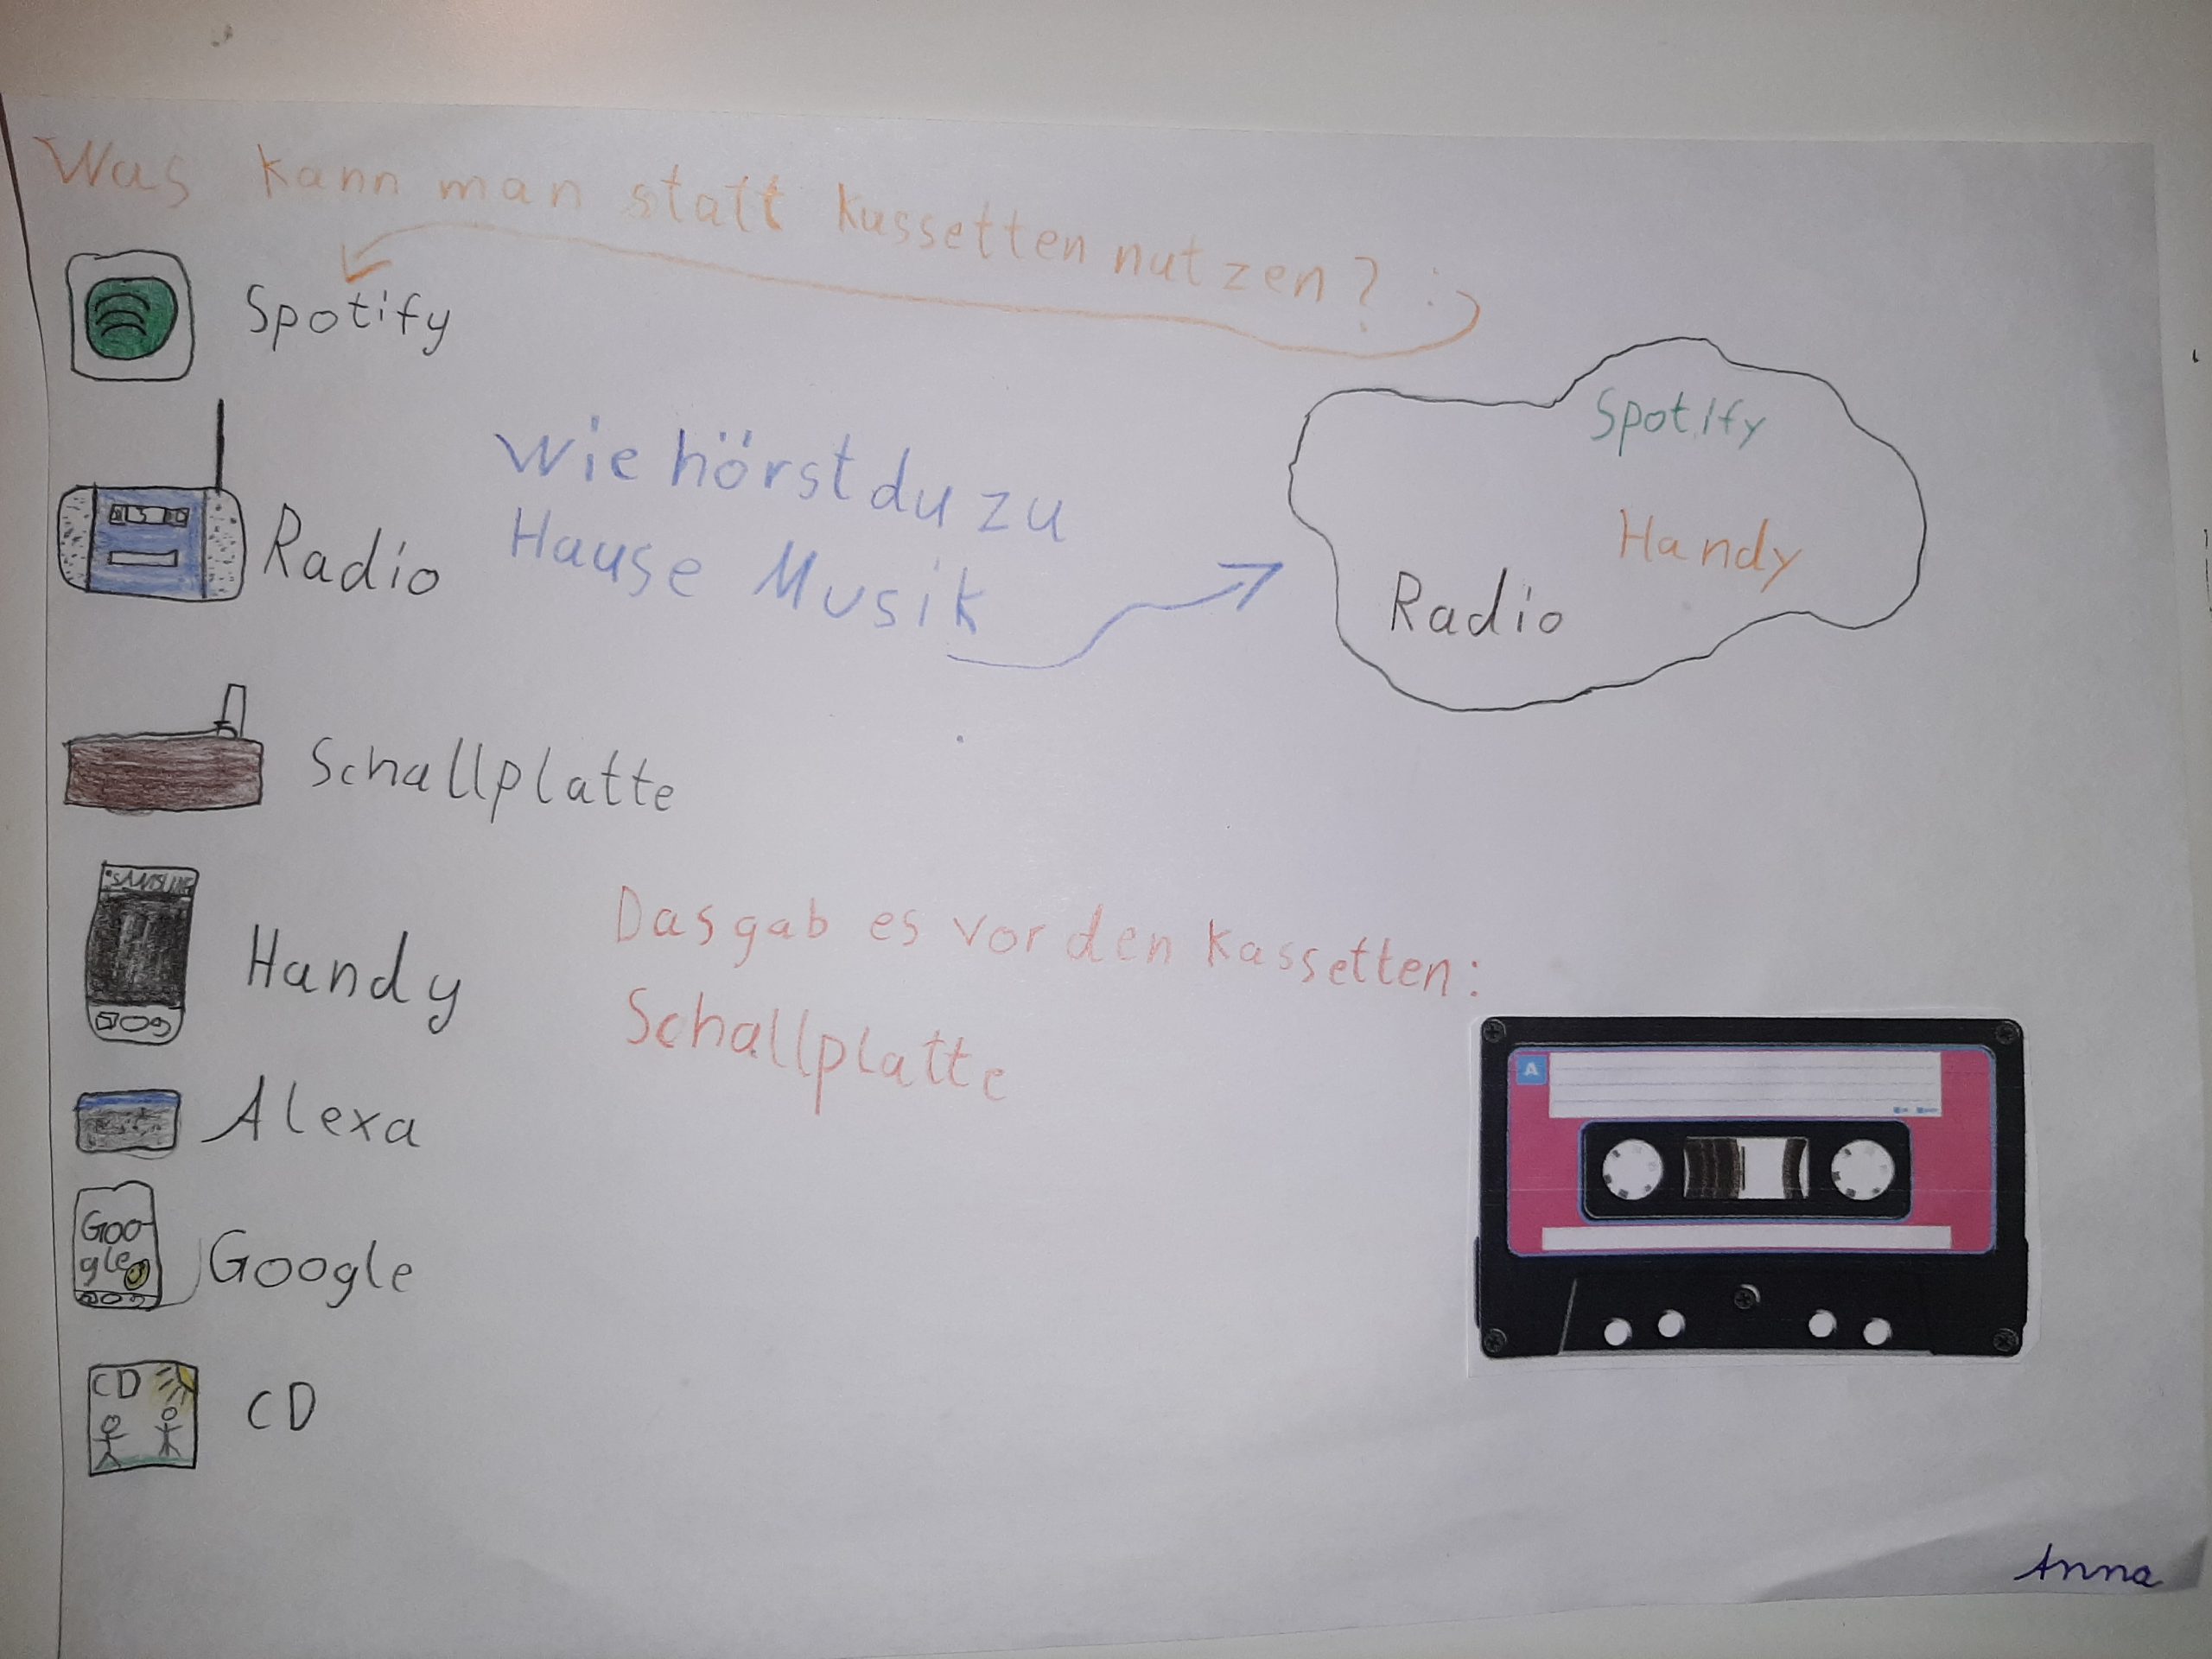 Was kann man statt Kassetten nutzen? :)
Spotify
Radio
Schallplatte
SAMSUNG
Handy
Alexa
Goo-
gle
Google
CD
CD
Wie hörst du zu
Hause Musik
Spotify
Handy
Radio
Das gab es vor den Kassetten:
Schallplatte
A
Anna